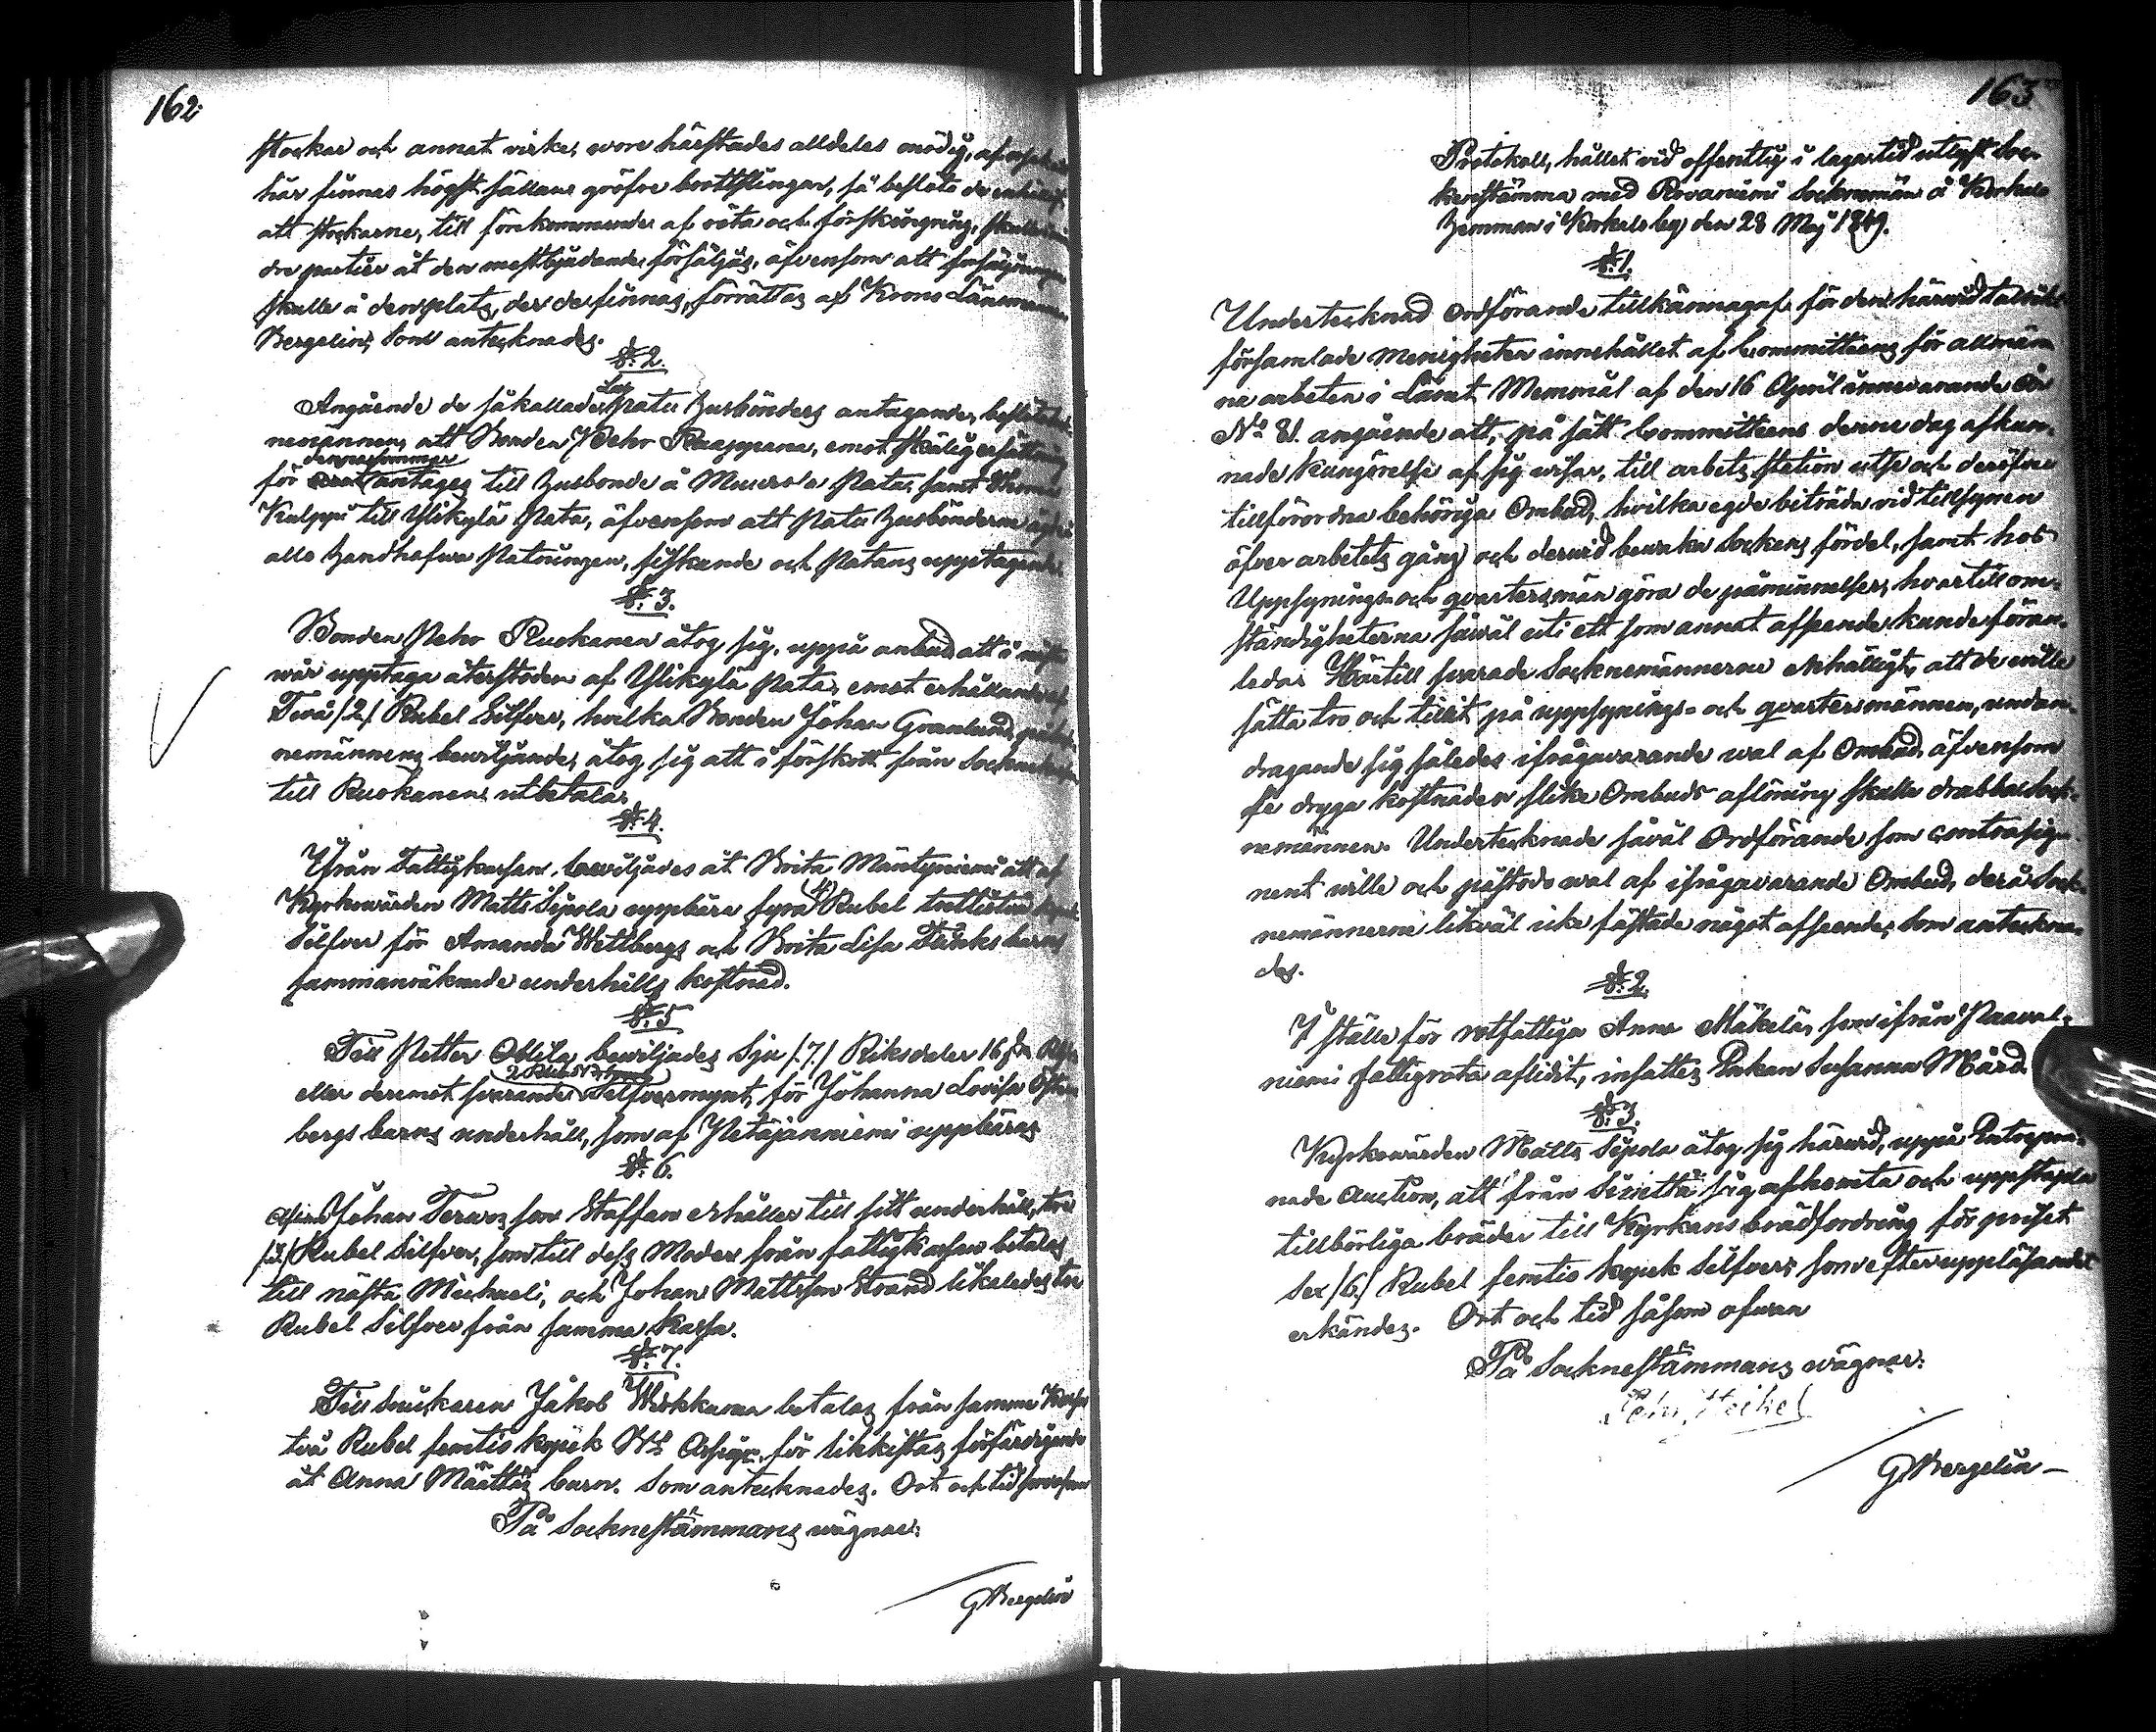 162.
stockar och annat virke, wore härstädes alldeles onödig,
här finnas högst sällan gröfre bottstängar, så beslöto de
att stockarne, till förekommande af röta och förskingring,
dre partier åt den mestbjudande försäljas, äfvensom att försäljningen
skulle å den plats, der de finnas, förrättas af Krono Länsmannen
Bergelin; Som antecknades.
§. 2.
Lax
Angående de såkallade pata Husbönders antagande,
nemännen, att Bonden Pehr Raappana, emot skälig ersättning
denna sommar
för antages till Husbonde å Muurola Pata, samt
Kulppi till Ylikylä Pata, äfvensom att Pata Husbönderne
alla handhafwa Patningen, fiskande och Patans upptagande.
§. 3.
Bonden Pehr Ruokanen åtog sig, uppå anbud att i
wår upptaga återstoden af Ylikylä Pata, emot erhållande af
Twå /2/ Rubel Silfver, hvilka Bonden Johan Granlund,
nemännens bewiljande, åtog sig att i förskott från
till Ruokanen utbetala.
§. 4.
Ifrån Fattigkassan bewiljades åt Brita Mäntyniemi att af
Kyrkowärden Matts Sipola uppbära fyra (4) Rubel trettiotvå
Silfver för Amanda Wettbergs och Brita Lisa Flinks barns
sammanräknade underhålls kostnad.
§. 5
Till Petter Ollila, bewiljades Sju /.7./ Riksdaler 16
eller deremot svarande Silfvermynt, för Johanna Lovisa
bergs barns underhåll, som af Petäjäniemi uppbäres
§. 6.
Johan Terwos son Staffan erhåller till sitt underhåll, tre
/3/ Rubel Silfver, som till dess Moder från fattigkassan betalas
till nästa Michaeli, och Johan Mattsson Strand likaledes tre
Rubel Silfver från samma Kassa.
§. 7.
Till snickaren Jakob Wiokkanen betalas från samma Kassa
två Rubel femtio kopek B:co Assign. för likkistas förfärdigande
åt Anna Määttäs barn. Som antecknades. Ort och tid
På Socknestämmans wägnar:
G Bergelin
163
Protokoll, hållet vid offentlig i lagastid utlyst Soc-
kenstämma med Rovaniemi Socknemän å Korkalo
Hemman i Korkalo by den 28 Maj 1849.
§. 1.
Undertecknad Ordförande tillkännagaf för den härwid talrikt
församlade menigheten innehållet af Committeens för allmän-
na arbeten i Länet Memorial af den 16 April innevarande år
No 21. angående att, på sätt Committeens denne dag afkun-
nade Kungörelse af sig wisar, till arbets station utse och deröfver
tillförordna behöriga Ombud, hvilka egde biträda vid tillsynen
öfver arbetets gång och derwid bewaka Sockens fördel, samt hos
Uppsynings- och qvartersmän göra de påminnelser, hvartill om-
ständigheterna såwäl uti ett som annat afseende kunde föran-
leda. Härtill svarade Socknemännerne enhälligt, att de wille
sätta tro och tillit på uppsynings- och qvartersmännen, undan-
dragande sig således ifrågavarande wal af Ombud, äfvensom
de dryga kostnader slike Ombuds aflöning skulle drabba Sock-
nemännen. Undertecknade såväl Ordförande som contrasig-
nent wille och påstodo wal af ifrågavarande Ombud, derå Sock-
nemännerne likväl icke fästade något afseende; Som anteckna-
des.
§. 2.
I stället för rotfattiga Anna Mäkelä, som ifrån Paaval-
niemi fattigrota aflidit, insattes Enkan Susanna Mård.
§. 3.
Kyrkowärden Matts Sipola åtog sig härwid, uppå Entrepre-
nade Auction, att från Sinettä såg afhemta och uppstapla
tillbörliga bräder till Kyrkans brädfordring för priset
Sex /6./ Rubel femtio kopek Silfver; som efter uppläsandet
erkändes. Ort och tid såsom ofwan
På Socknestämmans wägnar:
Pehr Heikel
G Bergelin